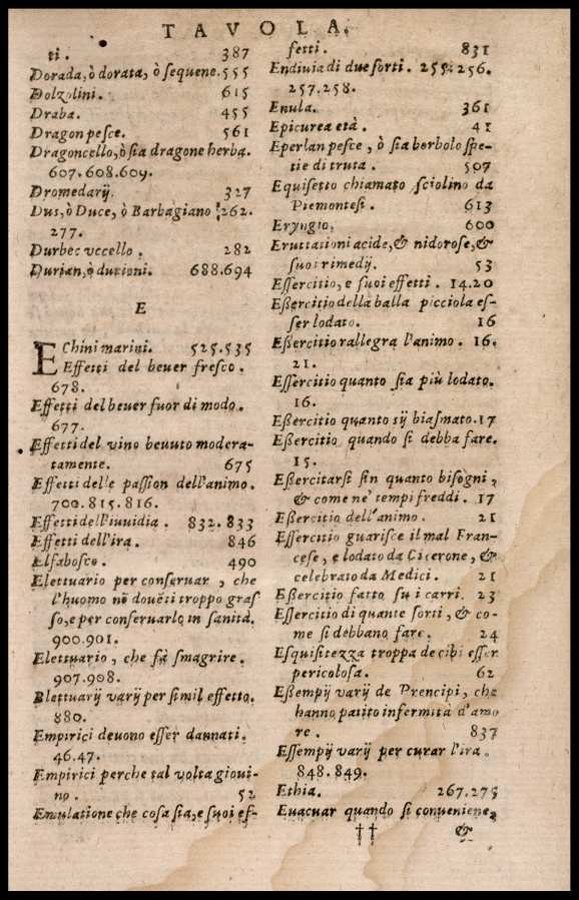 TAVOLA.
ti. 387
Dorada, ò dorata, ò sequene. 555
Dolzolini. 615
Draba. 455
Dragon pesce. 561
Dragoncello, ò sia dragone herba.
607.608.609.
Dromedarij. 327
Dus, ò Duce, ò Barbagiano 262.
277.
Durbec vccello. 282
Durian, ò durioni. 688.694
E
EChini marini. 525.535
Effetti del beuer fresco.
678.
Effetti del beuer fuor di modo.
677.
Effetti del vino beuuto modera-
tamente. 675
Effetti delle passion dell'animo.
700.815.816.
Effetti dell'inuidia. 832.833
Effetti dell'ira. 846
Elfabosco. 490
Elettuario per conseruar, che
l'huomo nõ douēti troppo gras
so, e per conseruarlo in sanità.
900.901.
Elettuario, che fà smagrire.
907.908.
Elettuarij varij per simil effetto.
880.
Empirici deuono esser dannati.
46.47.
Empirici perche tal volta gioui-
no. 52
Emulatione che cosa sia, e suoi ef-
fetti. 831
Endiuia di due sorti. 255.256.
257.258.
Enula. 361
Epicurea età. 41
Eperlan pesce, ò sia borbolo spe-
tie di truta. 507
Equisetto chiamato sciolino da
Piemontesi. 613
Eryngio. 600
Eruttationi acide, & nidorose, &
suoi rimedij. 53
Essercitio, e suoi effetti. 14.20
Eßercitio della balla picciola es-
ser lodato. 16
Eßercitio rallegra l'animo. 16.
21.
Essercitio quanto sia più lodato.
16.
Eßercitio quanto sij biasmato. 17
Eßercitio quando si debba fare.
15.
Eßercitarsi fin quanto bisogni,
& come ne' tempi freddi. 17
Eßercitio dell'animo. 21
Essercitio guarisce il mal Fran-
cese, e lodato da Cicerone, &
celebrato da Medici. 21
Eßercitio fatto su i carri. 23
Essercitio di quante sorti, & co-
me si debbano fare. 24
Esquisitezza troppa de cibi esser
pericolosa. 62
Eßempij varij de Prencipi, che
hanno patito infermità d'amo
re. 837
Essempij varij per curar l'ira.
848.849.
Ethia. 267.275
Euacuar quando si conueniene,
†† &